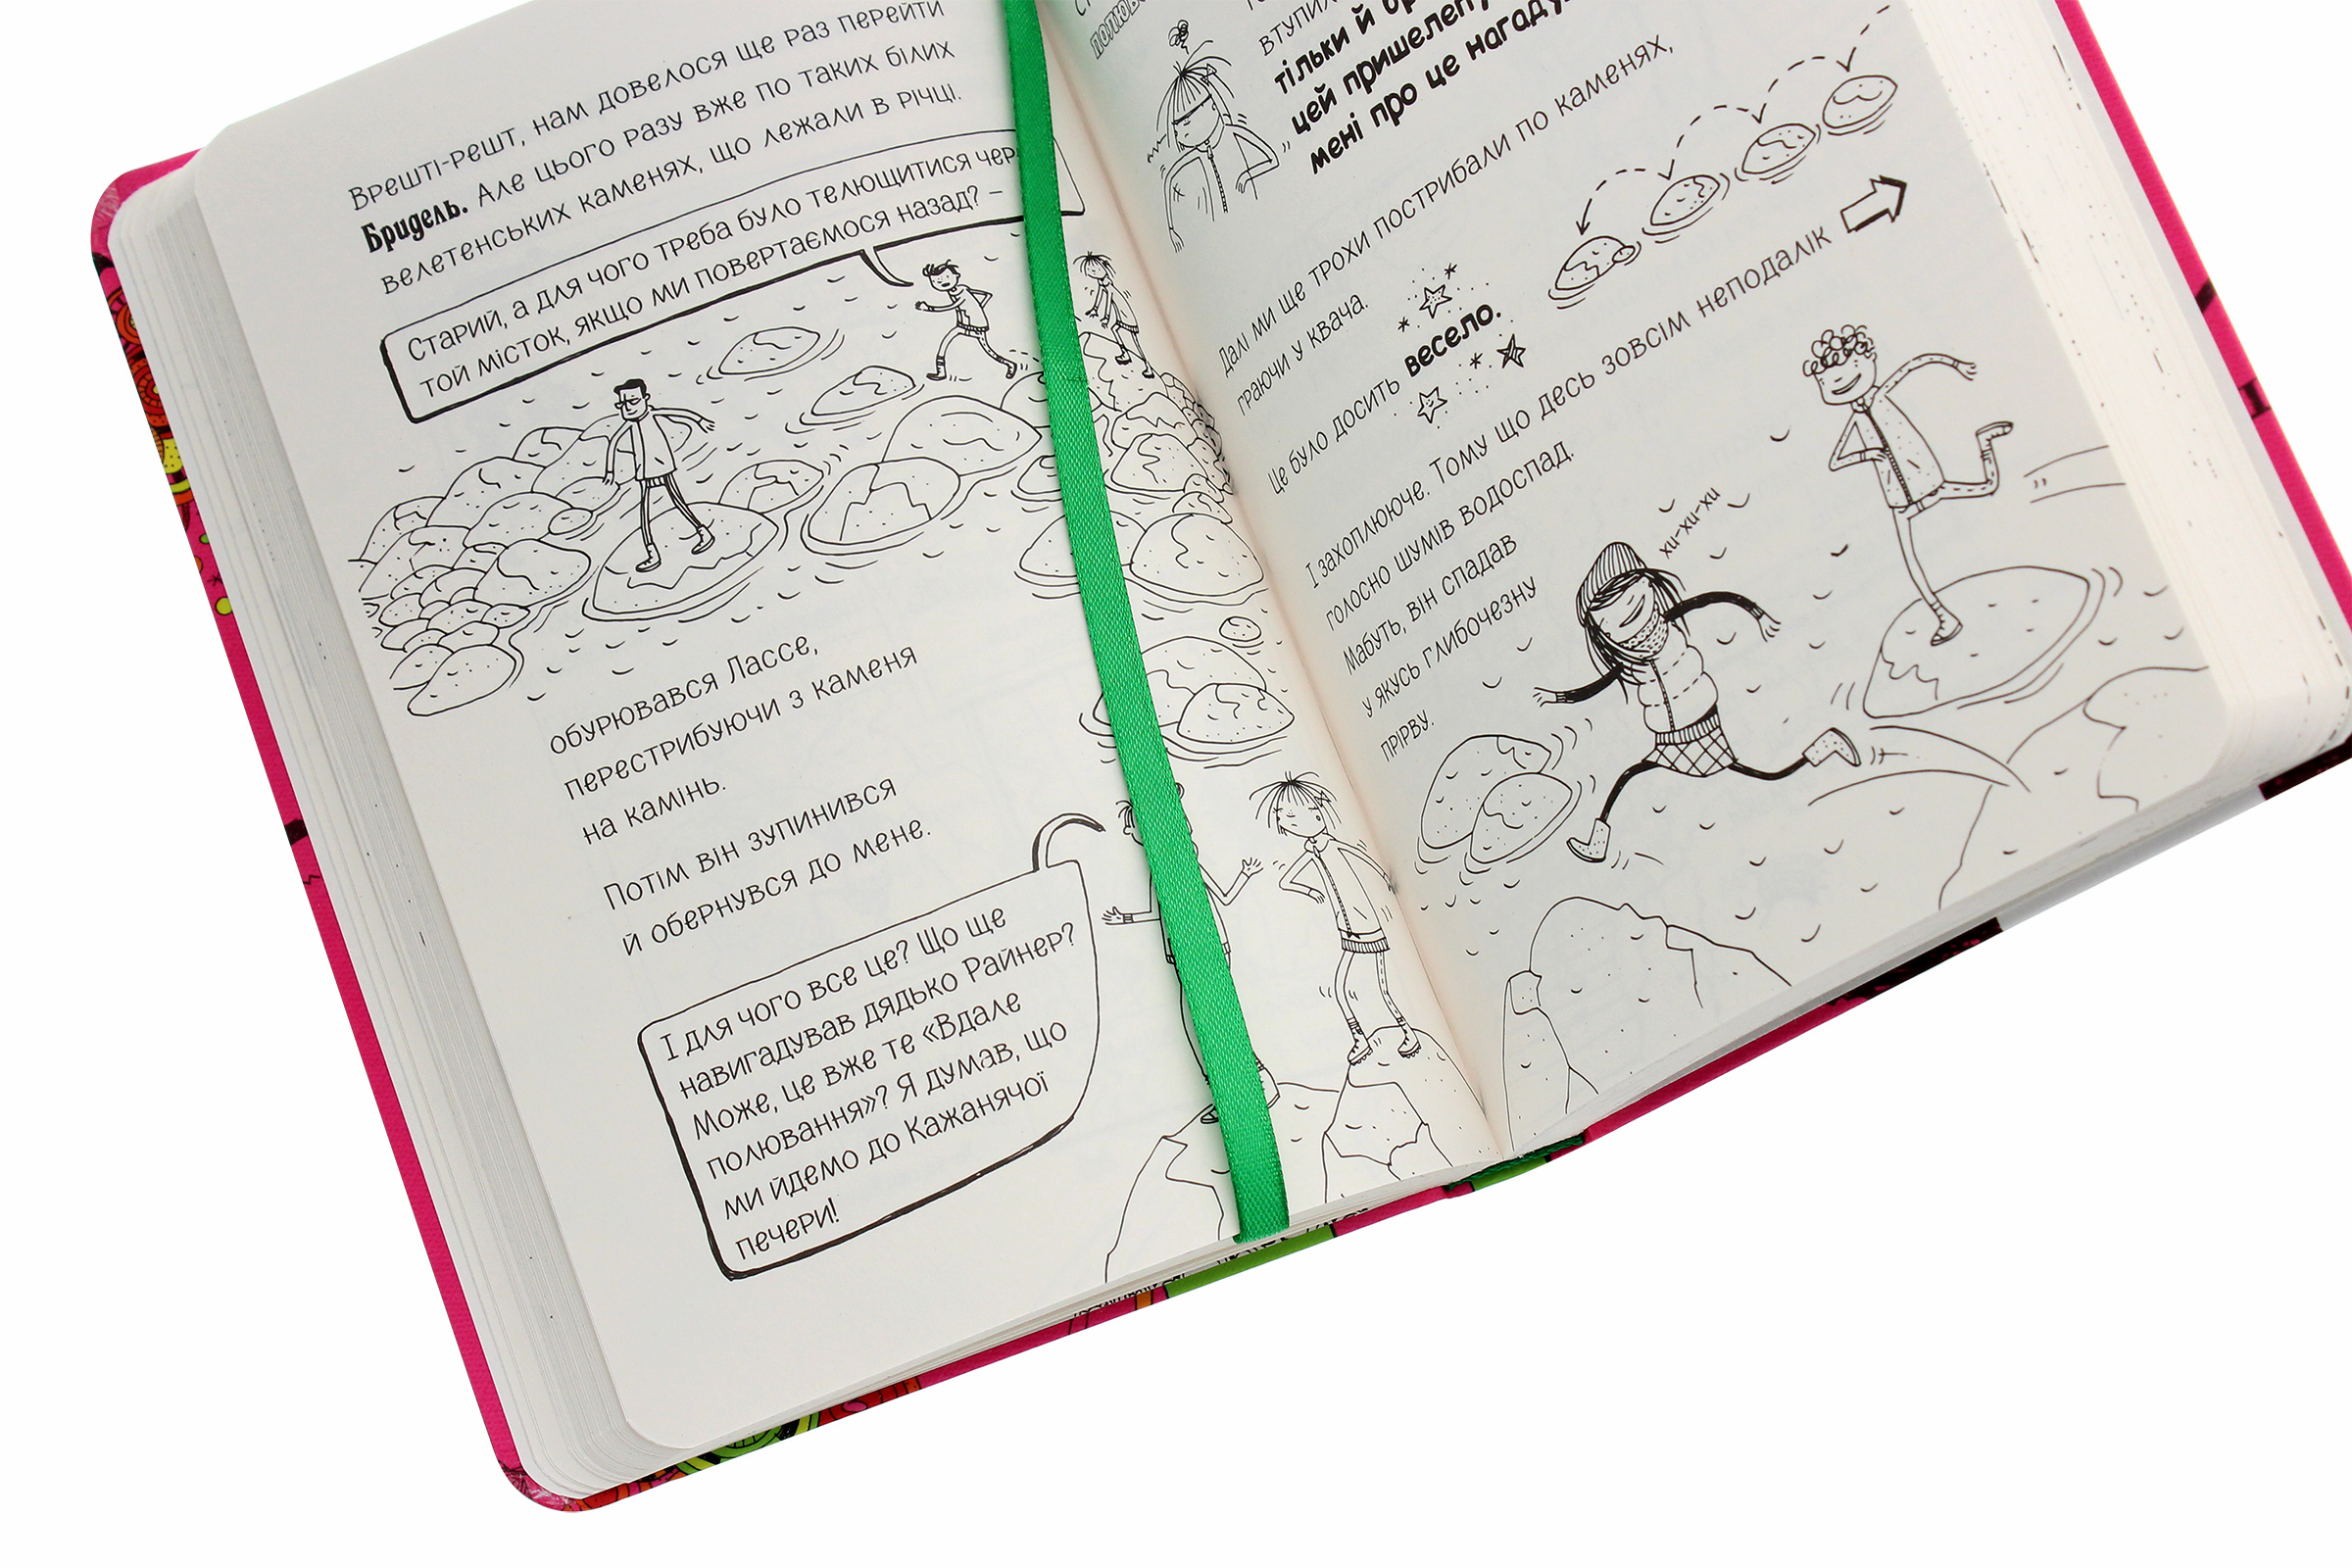 Врешті-решт, нам довелося ще раз перейти
Бридель. Але цього разу вже по таких білих
велетенських каменях, що лежали в річці.
Старий, а для чого треба було телющитися чер
той місток, якщо ми повертаємося назад? –
обурювався Лассе,
перестрибуючи з каменя
на камінь.
Потім він зупинився
й обернувся до мене.
І для чого все це? Що ще
навигадував дядько Райнер?
Може, це вже те «Вдале
полювання»? Я думав, що
ми йдемо до Кажанячої
печери!
втупи
тільки й
цей пришелепу
мені про це нагаду
Далі ми ще трохи пострибали по каменях,
граючи у квача.
Це було досить весело.
І захоплююче. Тому що десь зовсім неподалік
голосно шумів водоспад.
Мабуть, він спадав
у якусь глибочезну
прірву.
хи-хи-хи